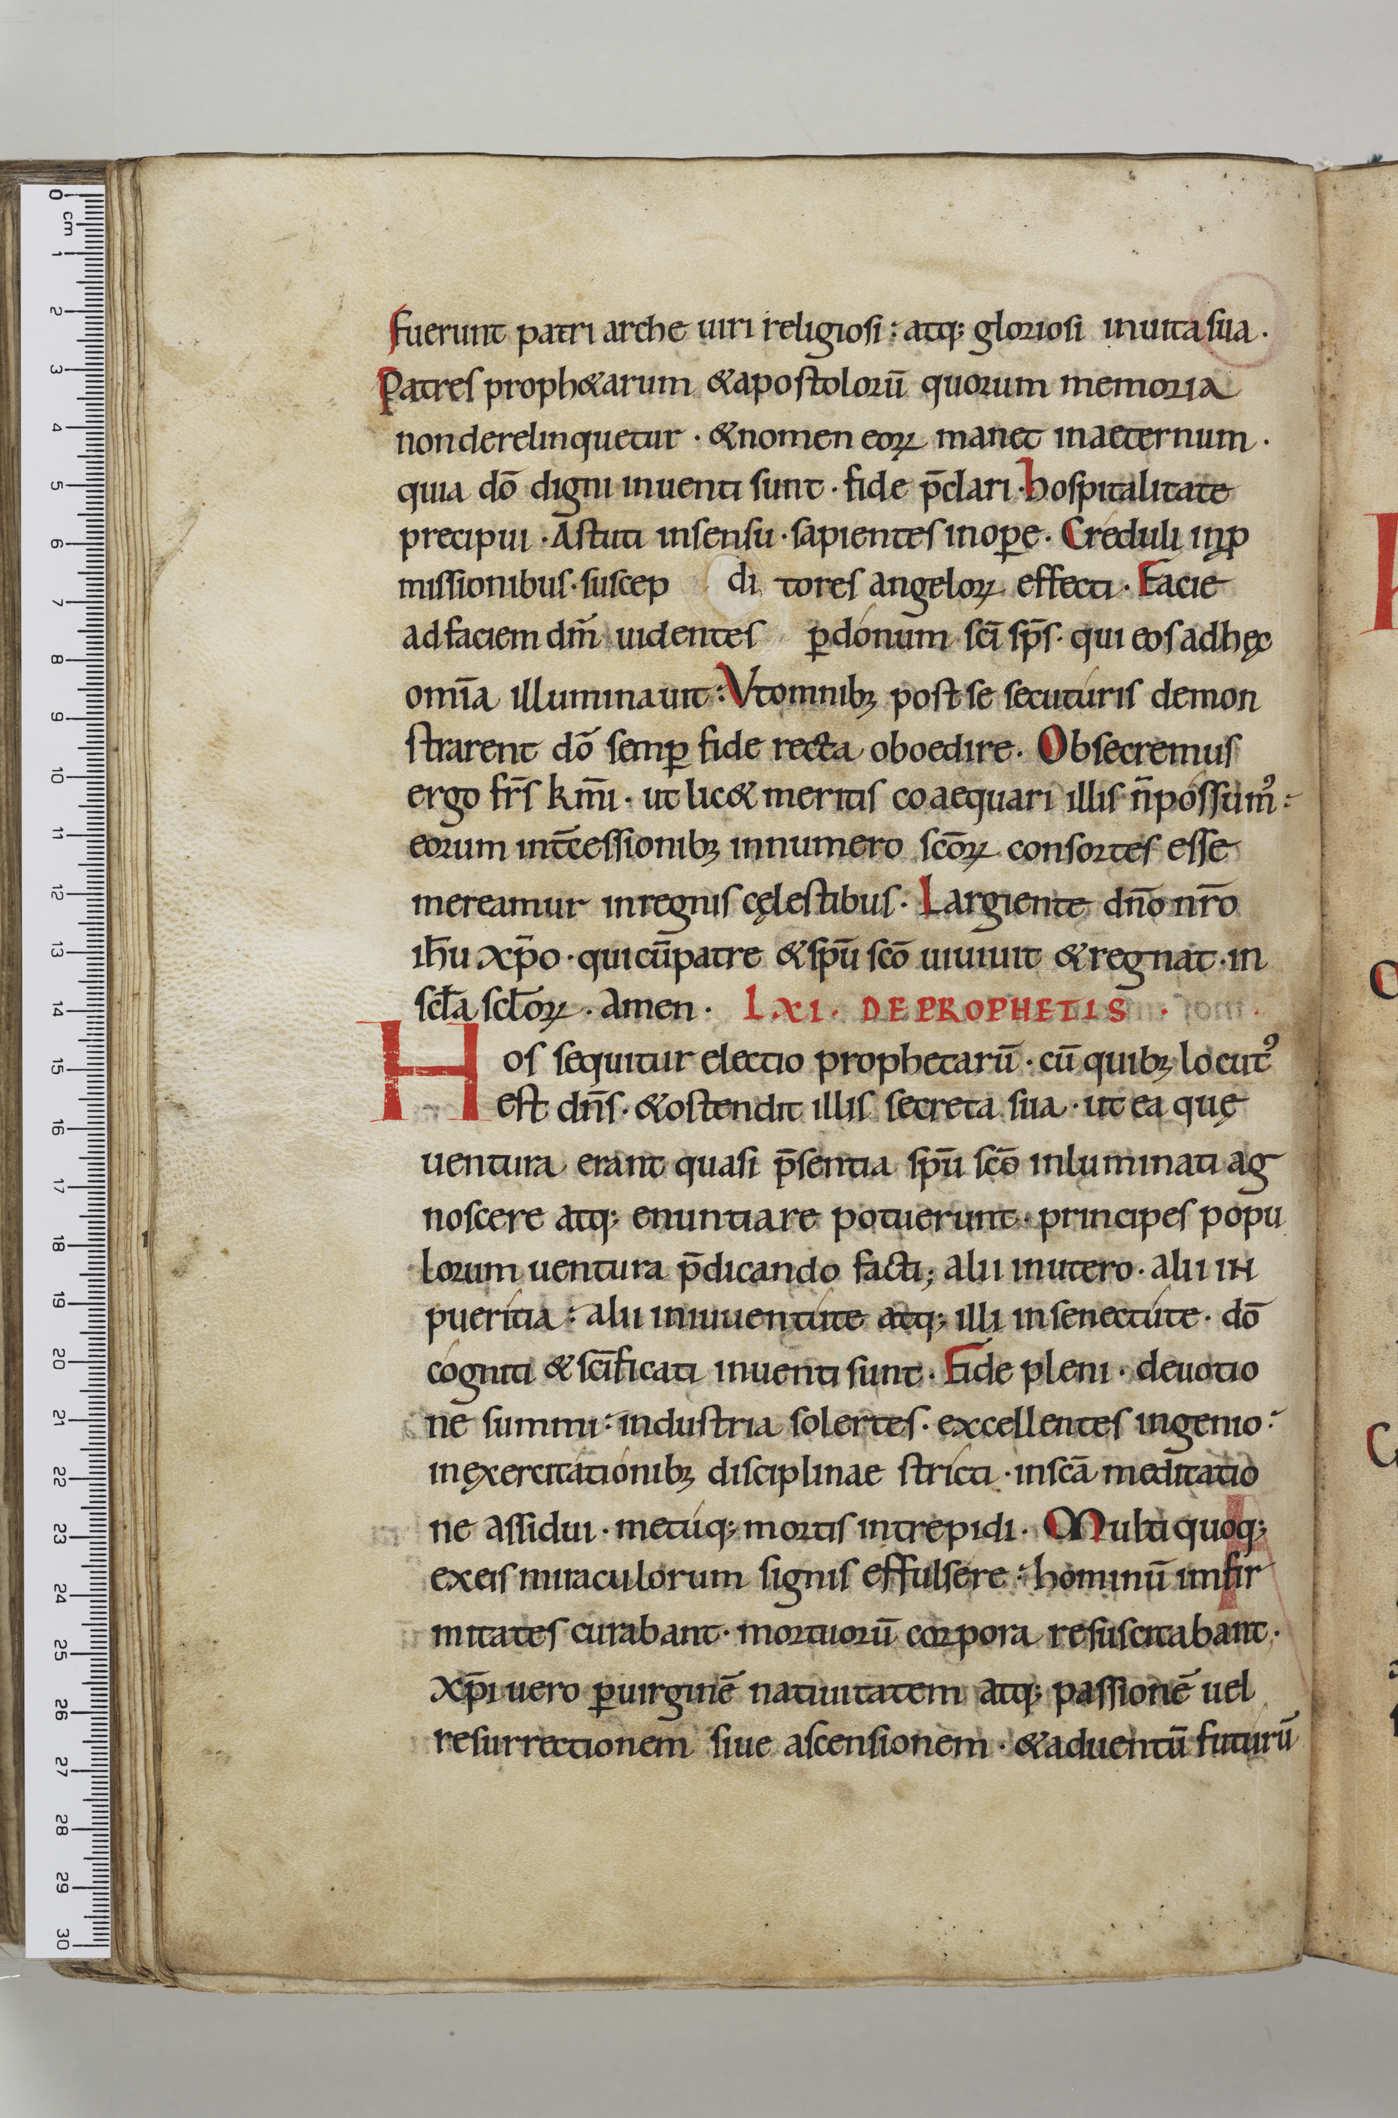 fuerunt patriarche uiri religiosi : atq; gloriosi in uita sua .
Patres proph&arum & apostolorū quorum memoria
non derelinquetur . & nomen eoꝝ manet in aeternum .
quia dō digni inuenti sunt . fide p̄clari . hospitalitate
precipui . Astuti in sensu . sapientes in oꝑe . Creduli in ꝓ
missionibus . suscep di tores angeloꝝ effecti . Facie
ad faciem dm̄ uidentes ꝑ donum sc̄i sp̄s . qui eos ad hęc
omīa illuminauit : Vt omnibꝫ post se secuturis demon
strarent dō semꝑ fide recta oboedire . Obsecremus
ergo fr̄s km̄i . ut lic& meritis coaequari illis n̄ possumꝰ :
eorum int̄cessionibꝫ in numero sc̄oꝝ consortes esse
mereamur in regnis cęlestibus . Largiente dn̄o nr̄o
ih̄u xp̄o . qui cū patre & sp̄u sc̄o uiuiuit & regnat . in
scl̄a scl̄oꝝ . amen . LXI . DE PROPHETIS .
Hos sequitur electio prophetarū . cū quibꝫ locutꝰ
est dn̄s . & ostendit illis secreta sua . ut ea quę
uentura erant quasi p̄sentia sp̄u sc̄o inluminati ag
noscere atq; enuntiare potuerunt . principes popu
lorum uentura p̄dicando facti ; alii in utero . alii in
pueritia : alii in iuuentute atq; illi in senectute . dō
cogniti & sc̄ificati inuenti sunt . Fide pleni . deuotio
ne summi : industria solertes . excellentes ingenio :
in ęxercitationibꝫ disciplinae stricti . in sc̄a meditatio
ne assidui . metuq; mortis intrepidi . Multi quoq;
ex eis miraculorum signis effulsere : hominū imfir
mitates curabant . mortuorū corpora resuscitabant .
xp̄i uero ꝑ uirginē natiuitatem atq; passionē uel
resurrectionem siue ascensionem . & aduentū futurū